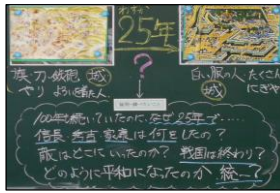 わずか
25年
旗 刀 鉄砲 城
やり よろいを着た人
白い服の人 たくさん
城 にぎやか
?
100年も続いていたのに、なぜ25年で……
信長 秀吉 家康は何をしたの?
敵はどこにいったのか? 戦国は終わり?
どのように平和になったのか 統一?